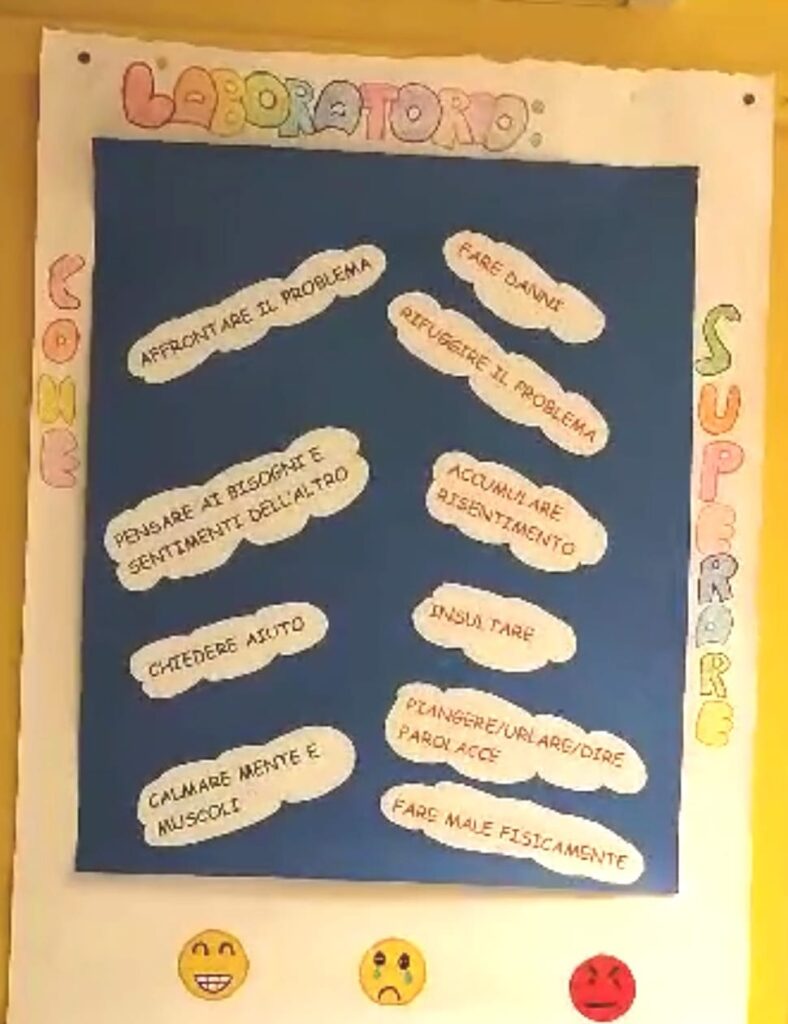 LABORATORIO:
COME
SUPERARE
AFFRONTARE IL PROBLEMA
PENSARE AI BISOGNI E
SENTIMENTI DELL'ALTRO
CHIEDERE AIUTO
CALMARE MENTE E
MUSCOLI
FARE DANNI
RIFUGGIRE IL PROBLEMA
ACCUMULARE
RISENTIMENTO
INSULTARE
PIANGERE/URLARE/DIRE
PAROLACCE
FARE MALE FISICAMENTE